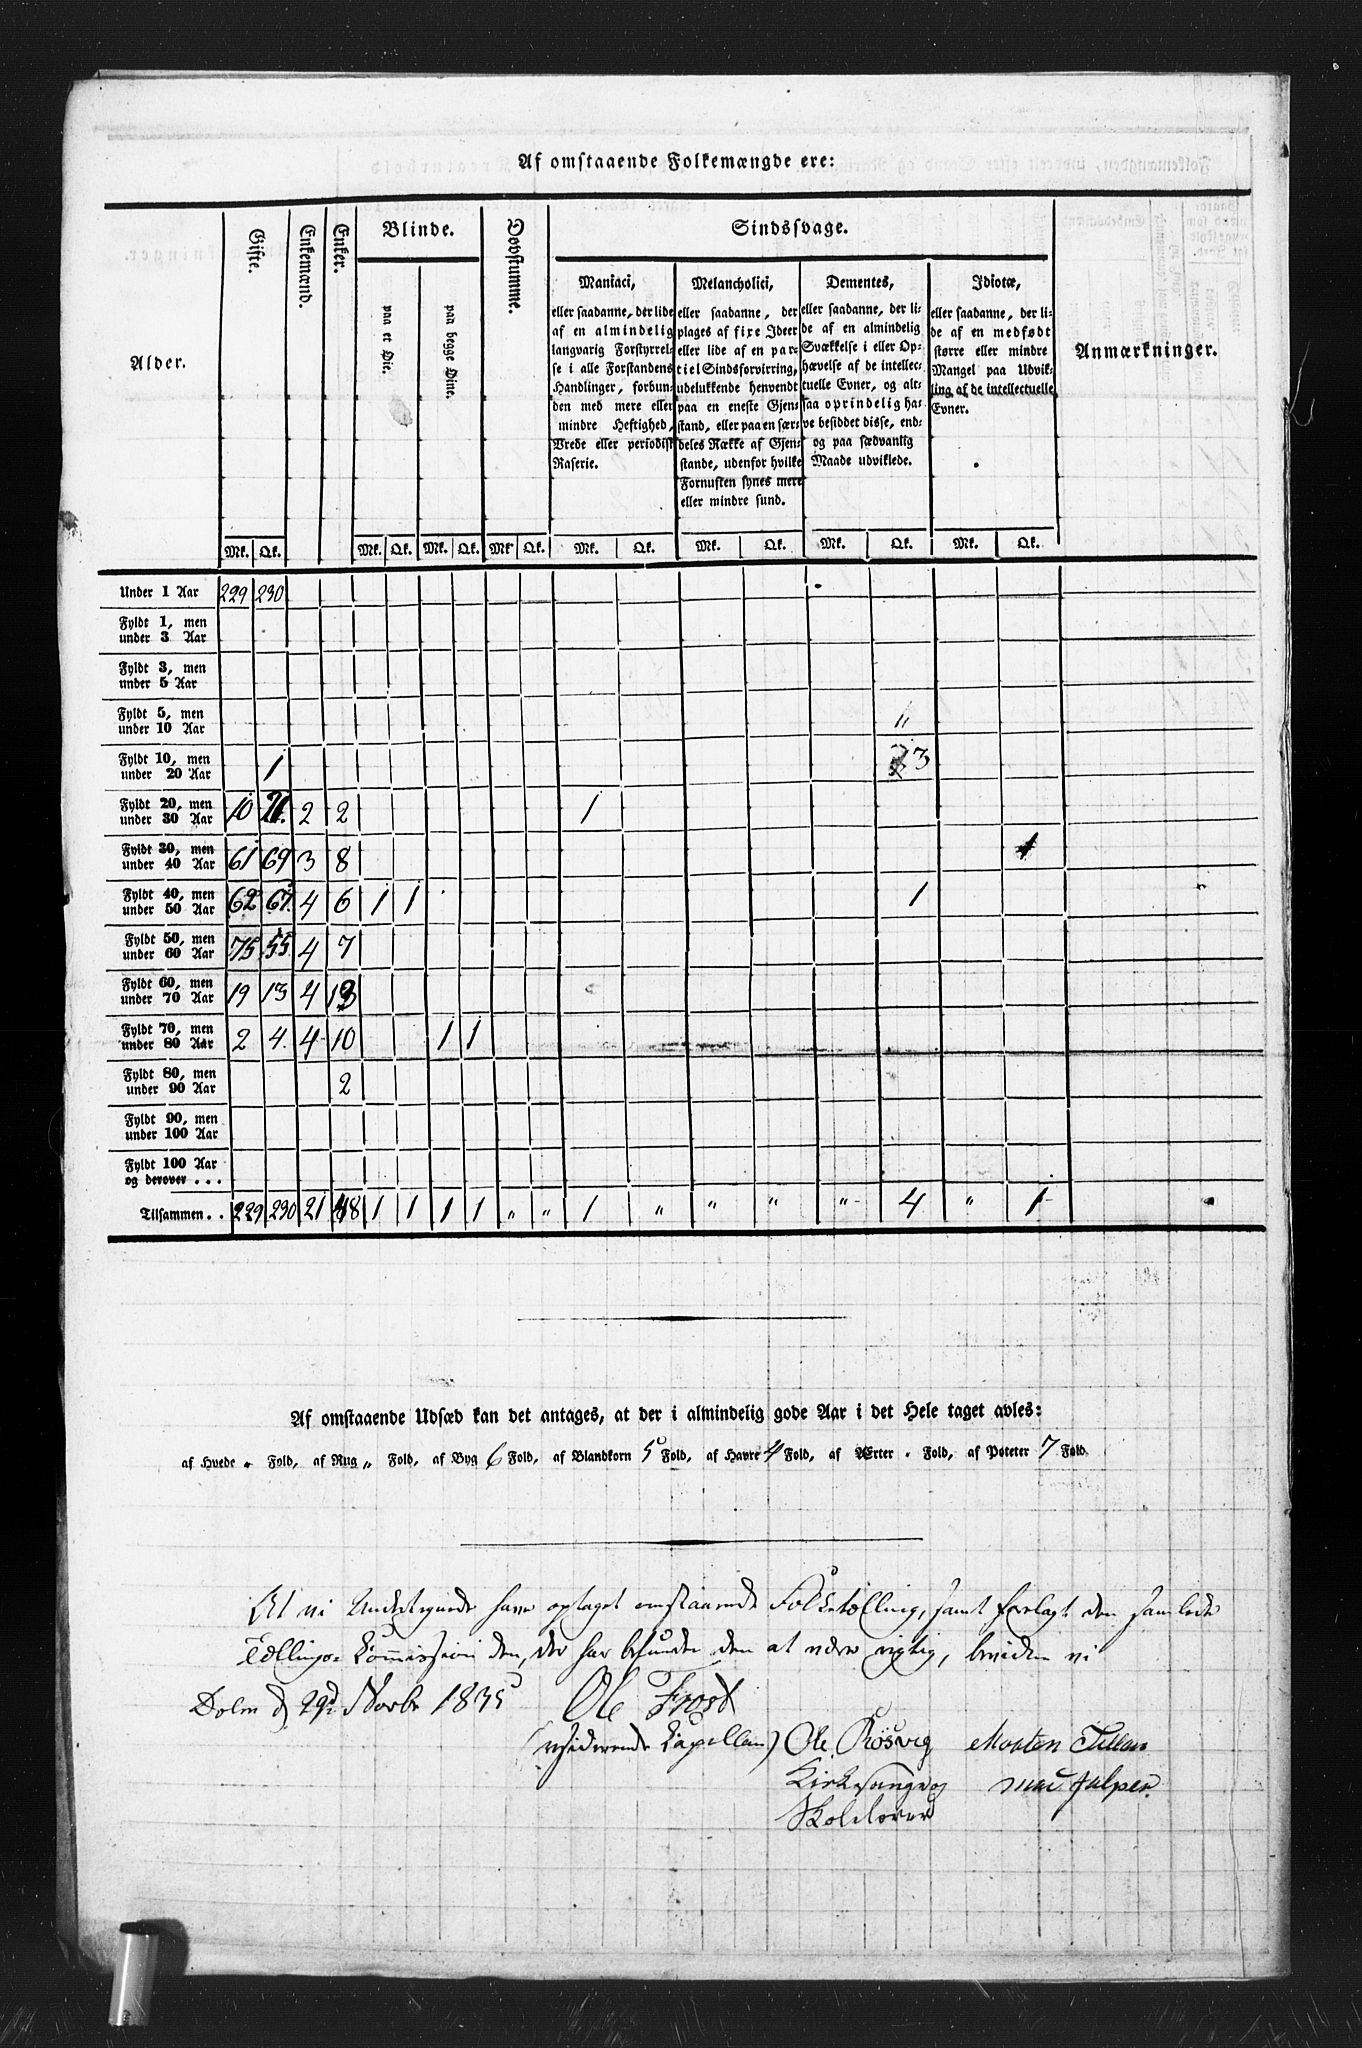 Af omstaaende Folkemængde ere:
Alder. Gifte. Enkemænd. Enker. Blinde. Døvstumme. Sindssvage. Anmærkninger.
paa et Øie. paa begge Øine.
Maniaci,
eller saadanne, der lide
af en almindelig
langvarig Forstyrrel-
se i alle Forstandens
Handlinger, forbun-
den med mere eller
mindre Heftighed,
Vrede eller periodisk
Raserie.
Melancholici,
eller saadanne, der
plages af fixe Ideer
eller lide af en par-
tiel Sindsforvirring,
udelukkende henvendt
paa en eneste Gjen-
stand, eller paa en sær-
deles Række af Gjen-
stande, udenfor hvilke
Fornuften synes mere
eller mindre sund.
Dementes,
eller saadanne, der li-
de af en almindelig
Svækkelse i eller Op-
hævelse af de intellec-
tuelle Evner, og alt-
saa oprindelig ha-
ve besiddet disse, end-
og paa sædvanlig
Maade udviklede.
Idiotæ,
eller saadanne, der li-
de af en medfødt
større eller mindre
Mangel paa Udvik-
ling af de intellectuelle
Evner.
Mk. Qk. Mk. Qk. Mk. Qk. Mk. Qk. Mk. Qk. Mk. Qk. Mk. Qk. Mk. Qk.
Under 1 Aar 229 230
Fyldt 1, men
under 3 Aar
Fyldt 3, men
under 5 Aar
Fyldt 5, men
under 10 Aar "
Fyldt 10, men
under 20 Aar 1 3
Fyldt 20, men
under 30 Aar 10 21. 2 2 1
Fyldt 30, men
under 40 Aar 61 69 3 8 1
Fyldt 40, men
under 50 Aar 62 67. 4 6 1 1 1
Fyldt 50, men
under 60 Aar 75 55 4 7
Fyldt 60, men
under 70 Aar 19 13 4 13
Fyldt 70, men
under 80 Aar 2 4. 4 10 1 1
Fyldt 80, men
under 90 Aar 2
Fyldt 90, men
under 100 Aar
Fyldt 100 Aar
og derover . . .
Tilsammen . . 229 230 21 48 1 1 1 1 " " 1 " " " " 4 " 1
Af omstaaende Udsæd kan det antages, at der i almindelig gode Aar i det Hele taget avles:
af Hvede " Fold, af Rug " Fold, af Byg 6 Fold, af Blandkorn 5 Fold, af Havre 4 Fold, af Ærter " Fold, af Poteter 7 Fold.
At vi Undertegnede have optaget omstaaende Folketælling, samt forelagt den samlede
Tællings-Commission den, der har befunden den at være rigtig, bevidne vi
Dolm d. 29d Novbr 1835 Ole Frost
(residerende Capellan) Ole Røsvig Morten
Kirkesanger og
Skolelærer